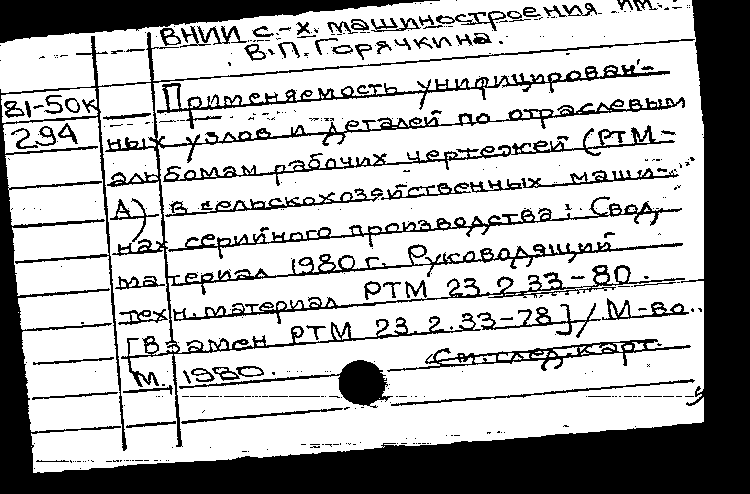 ВНИИ с.-х. машиностроения им.
В.П. Горячкина.
81-50к
294
Применяемость унифицирован-
ных узлов и деталей по отраслевым
альбомам рабочих чертежей (РТМ-
А) в сельскохозяйственных маши-
нах серийного производства: Свод.
материал 1980 г. Руководящий
техн. материал РТМ 23.2.33-80.
[Взамен РТМ 23.2.33-78] / М-во..
М., 1980.
См. след. карт.